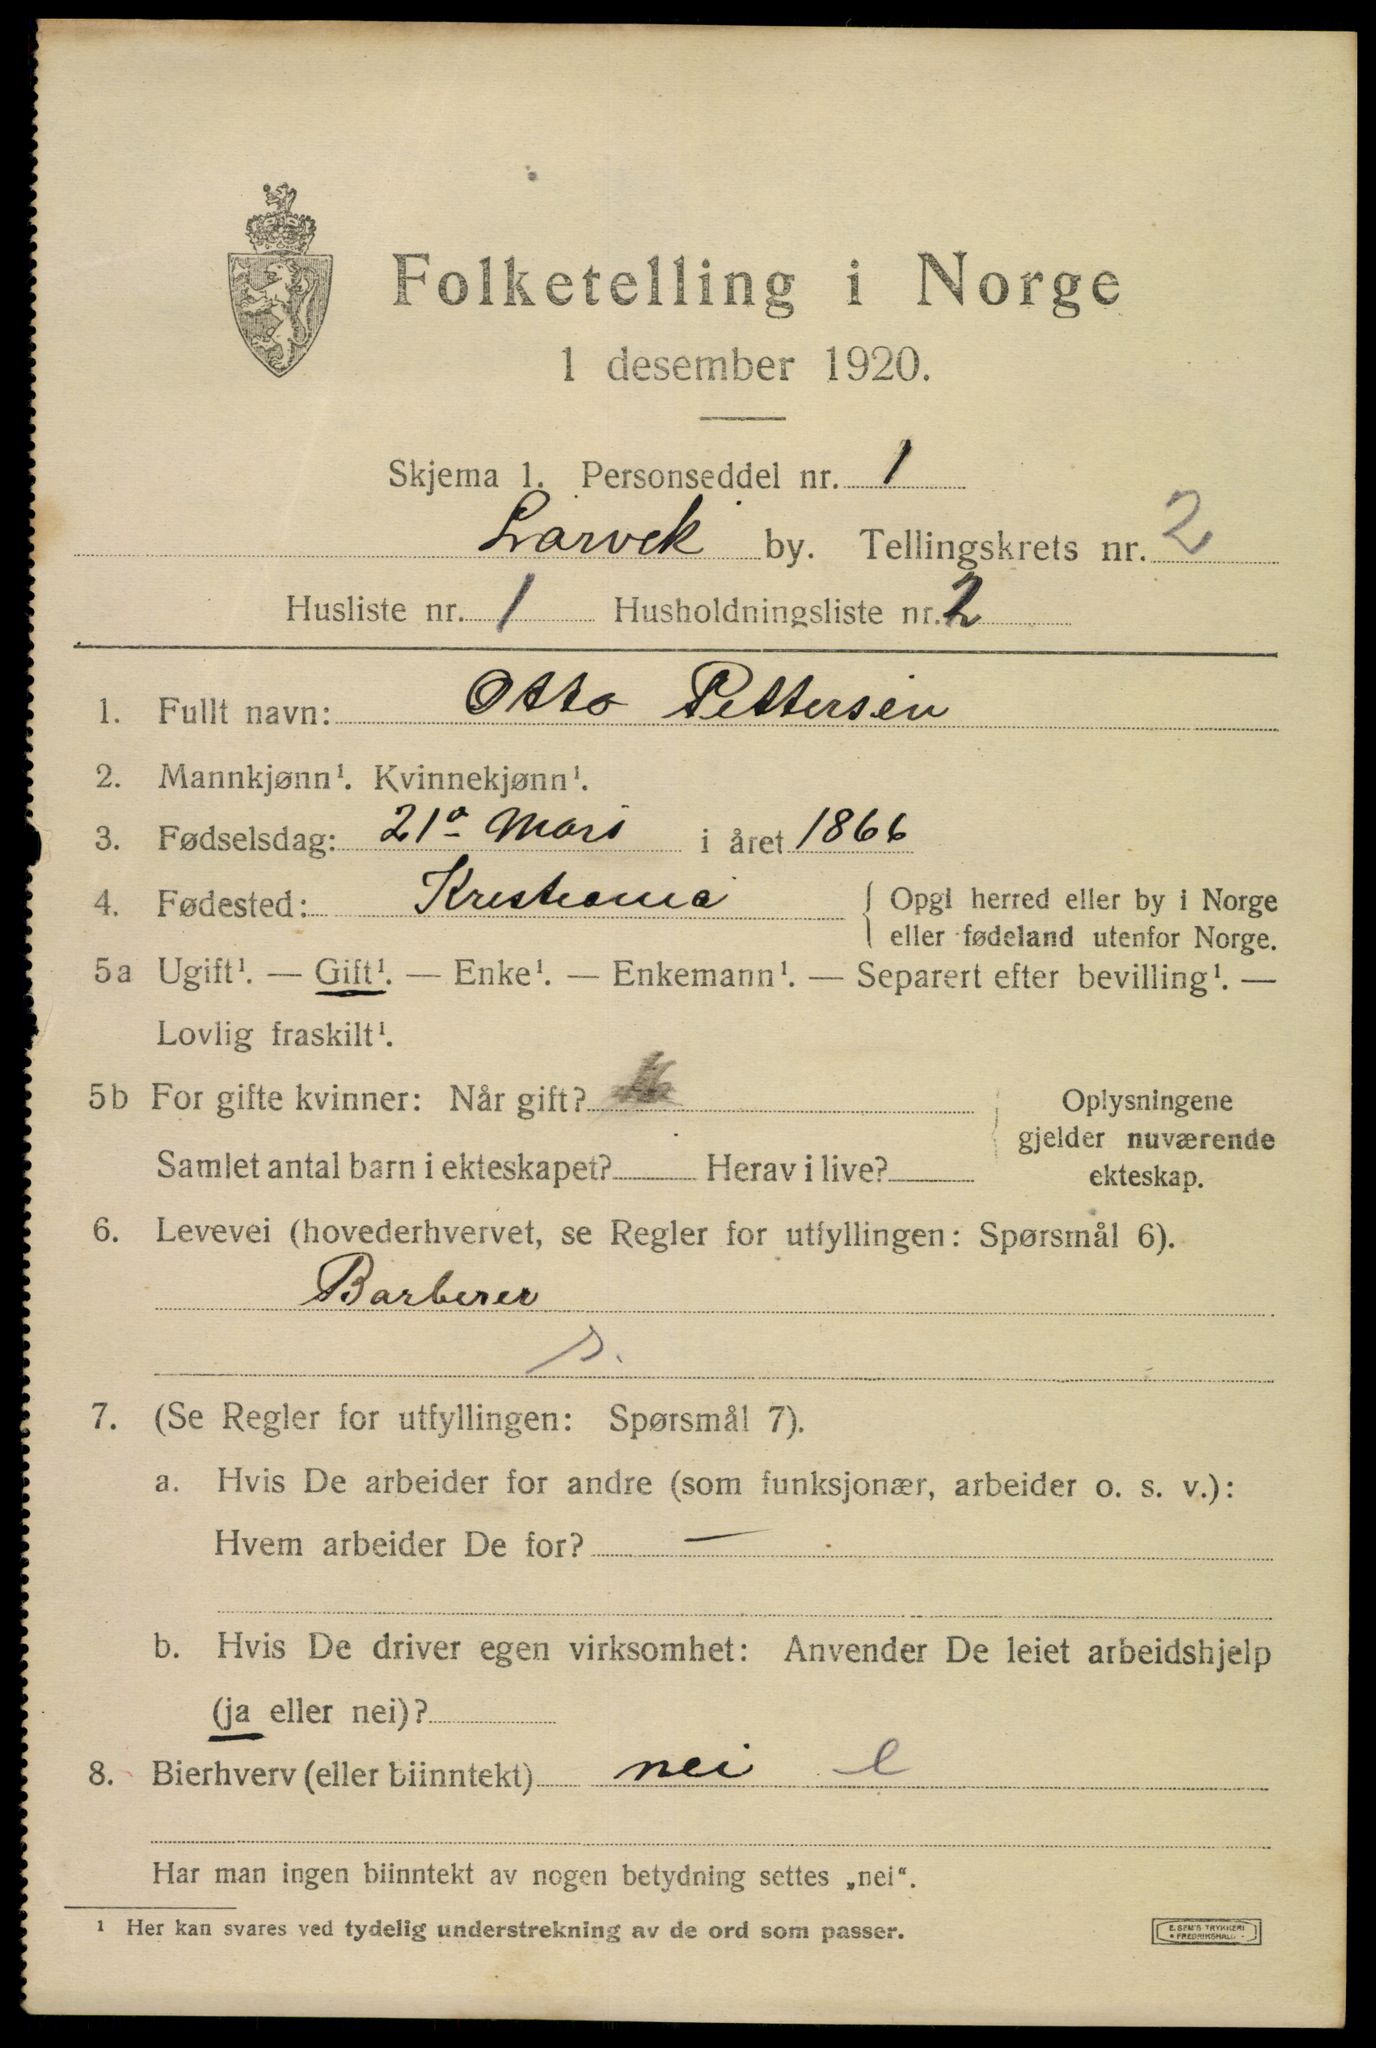 Folketelling i Norge
1 desember 1920.
Skjema 1. Personseddel nr. 1
Larvik by. Tellingskrets nr. 2
Husliste nr. 1 Husholdningsliste nr. 2
1. Fullt navn: Otto Pettersen
2. Mannkjønn¹. Kvinnekjønn¹.
3. Fødselsdag: 21º Mars i året 1866
4. Fødested: Kristiania { Opgi herred eller by i Norge
eller fødeland utenfor Norge.
5a Ugift¹. — Gift¹. — Enke¹. — Enkemann¹. — Separert efter bevilling¹. —
Lovlig fraskilt¹.
5b For gifte kvinner: Når gift? Oplysningene
gjelder nuværende
Samlet antal barn i ekteskapet? Herav i live? ekteskap.
6. Levevei (hovederhvervet, se Regler for utfyllingen: Spørsmål 6).
Barberer
s.
7. (Se Regler for utfyllingen: Spørsmål 7).
a. Hvis De arbeider for andre (som funksjonær, arbeider o. s. v.):
Hvem arbeider De for? —
b. Hvis De driver egen virksomhet: Anvender De leiet arbeidshjelp
(ja eller nei)?
8. Bierhverv (eller biinntekt) nei e
Har man ingen biinntekt av nogen betydning settes „nei“.
¹ Her kan svares ved tydelig understrekning av de ord som passer.
E. SEM'S TRYKKERI
• FREDRIKSHALD •